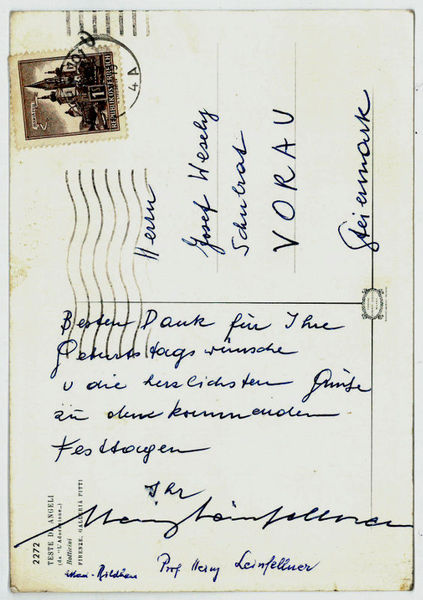 REPUBLIK ÖSTERREICH
Herrn
Josef Wesely
Schulrat
VORAU
Steiermark
Besten Dank für Ihre
Geburtstagswünsche
u die herzlichsten Grüße
zu den kommenden
Festtagen
Ihr
2272
TESTE DI ANGELI
(da "L'Adorazione")
Botticini
FIRENZE, GALLERIA PITTI
Prof Heinz Leinfellner